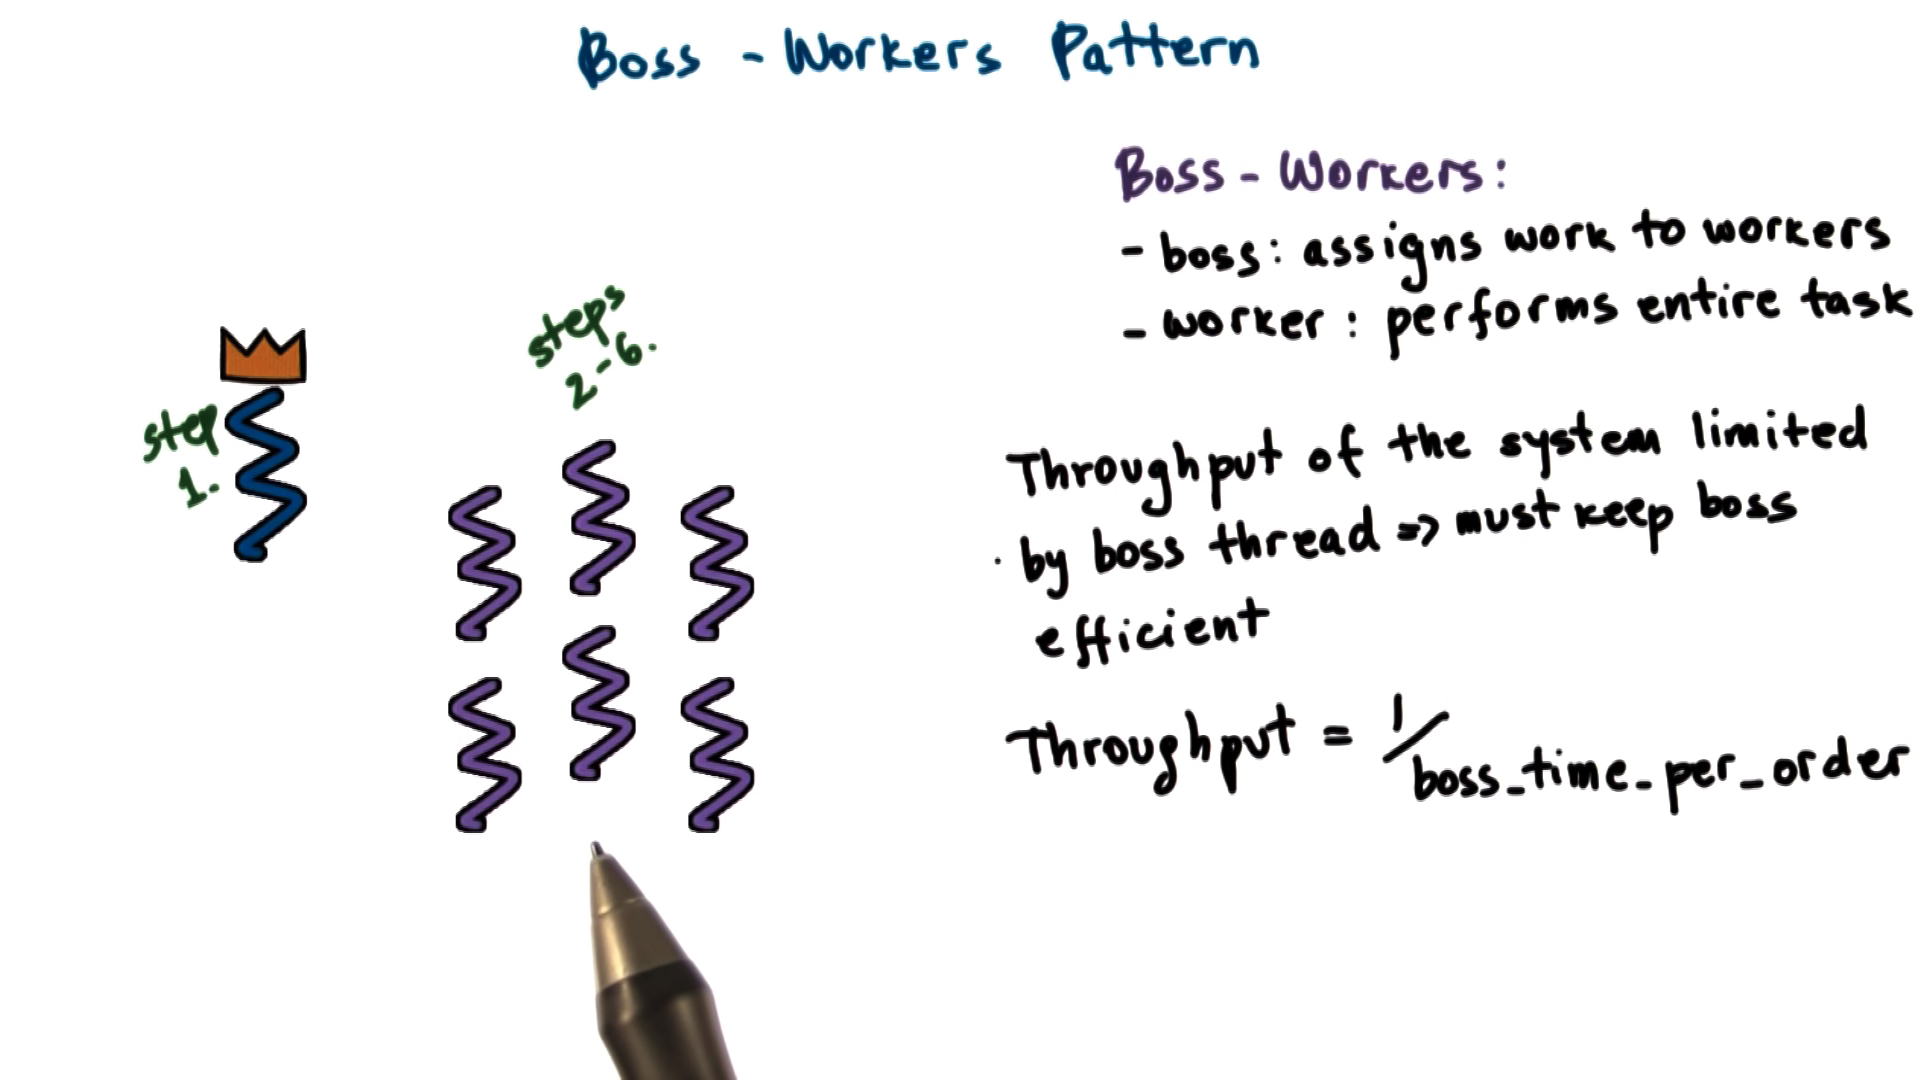 Boss - Workers Pattern
Boss - Workers:
- boss: assigns work to workers
- worker: performs entire task
steps
2-6.
step
1.
Throughput of the system limited
by boss thread => must keep boss
efficient
Throughput = 1/boss_time_per_order